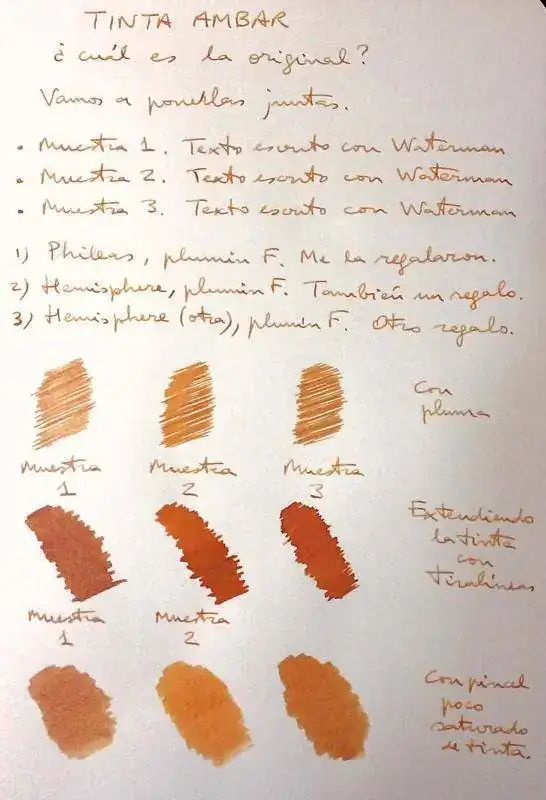 TINTA AMBAR
¿cuál es la original?
Vamos a ponerlas juntas.
• Muestra 1. Texto escrito con Waterman
• Muestra 2. Texto escrito con Waterman
• Muestra 3. Texto escrito con Waterman
1) Phileas, plumín F. Me la regalaron.
2) Hemisphere, plumín F. También un regalo.
3) Hemisphere (otra), plumín F. Otro regalo.
Con
pluma
Muestra 1
Muestra 2
Muestra 3
Extendiendo
la tinta
con
tiralíneas
Muestra 1
Muestra 2
Con pincel
poco
saturado
de tinta.